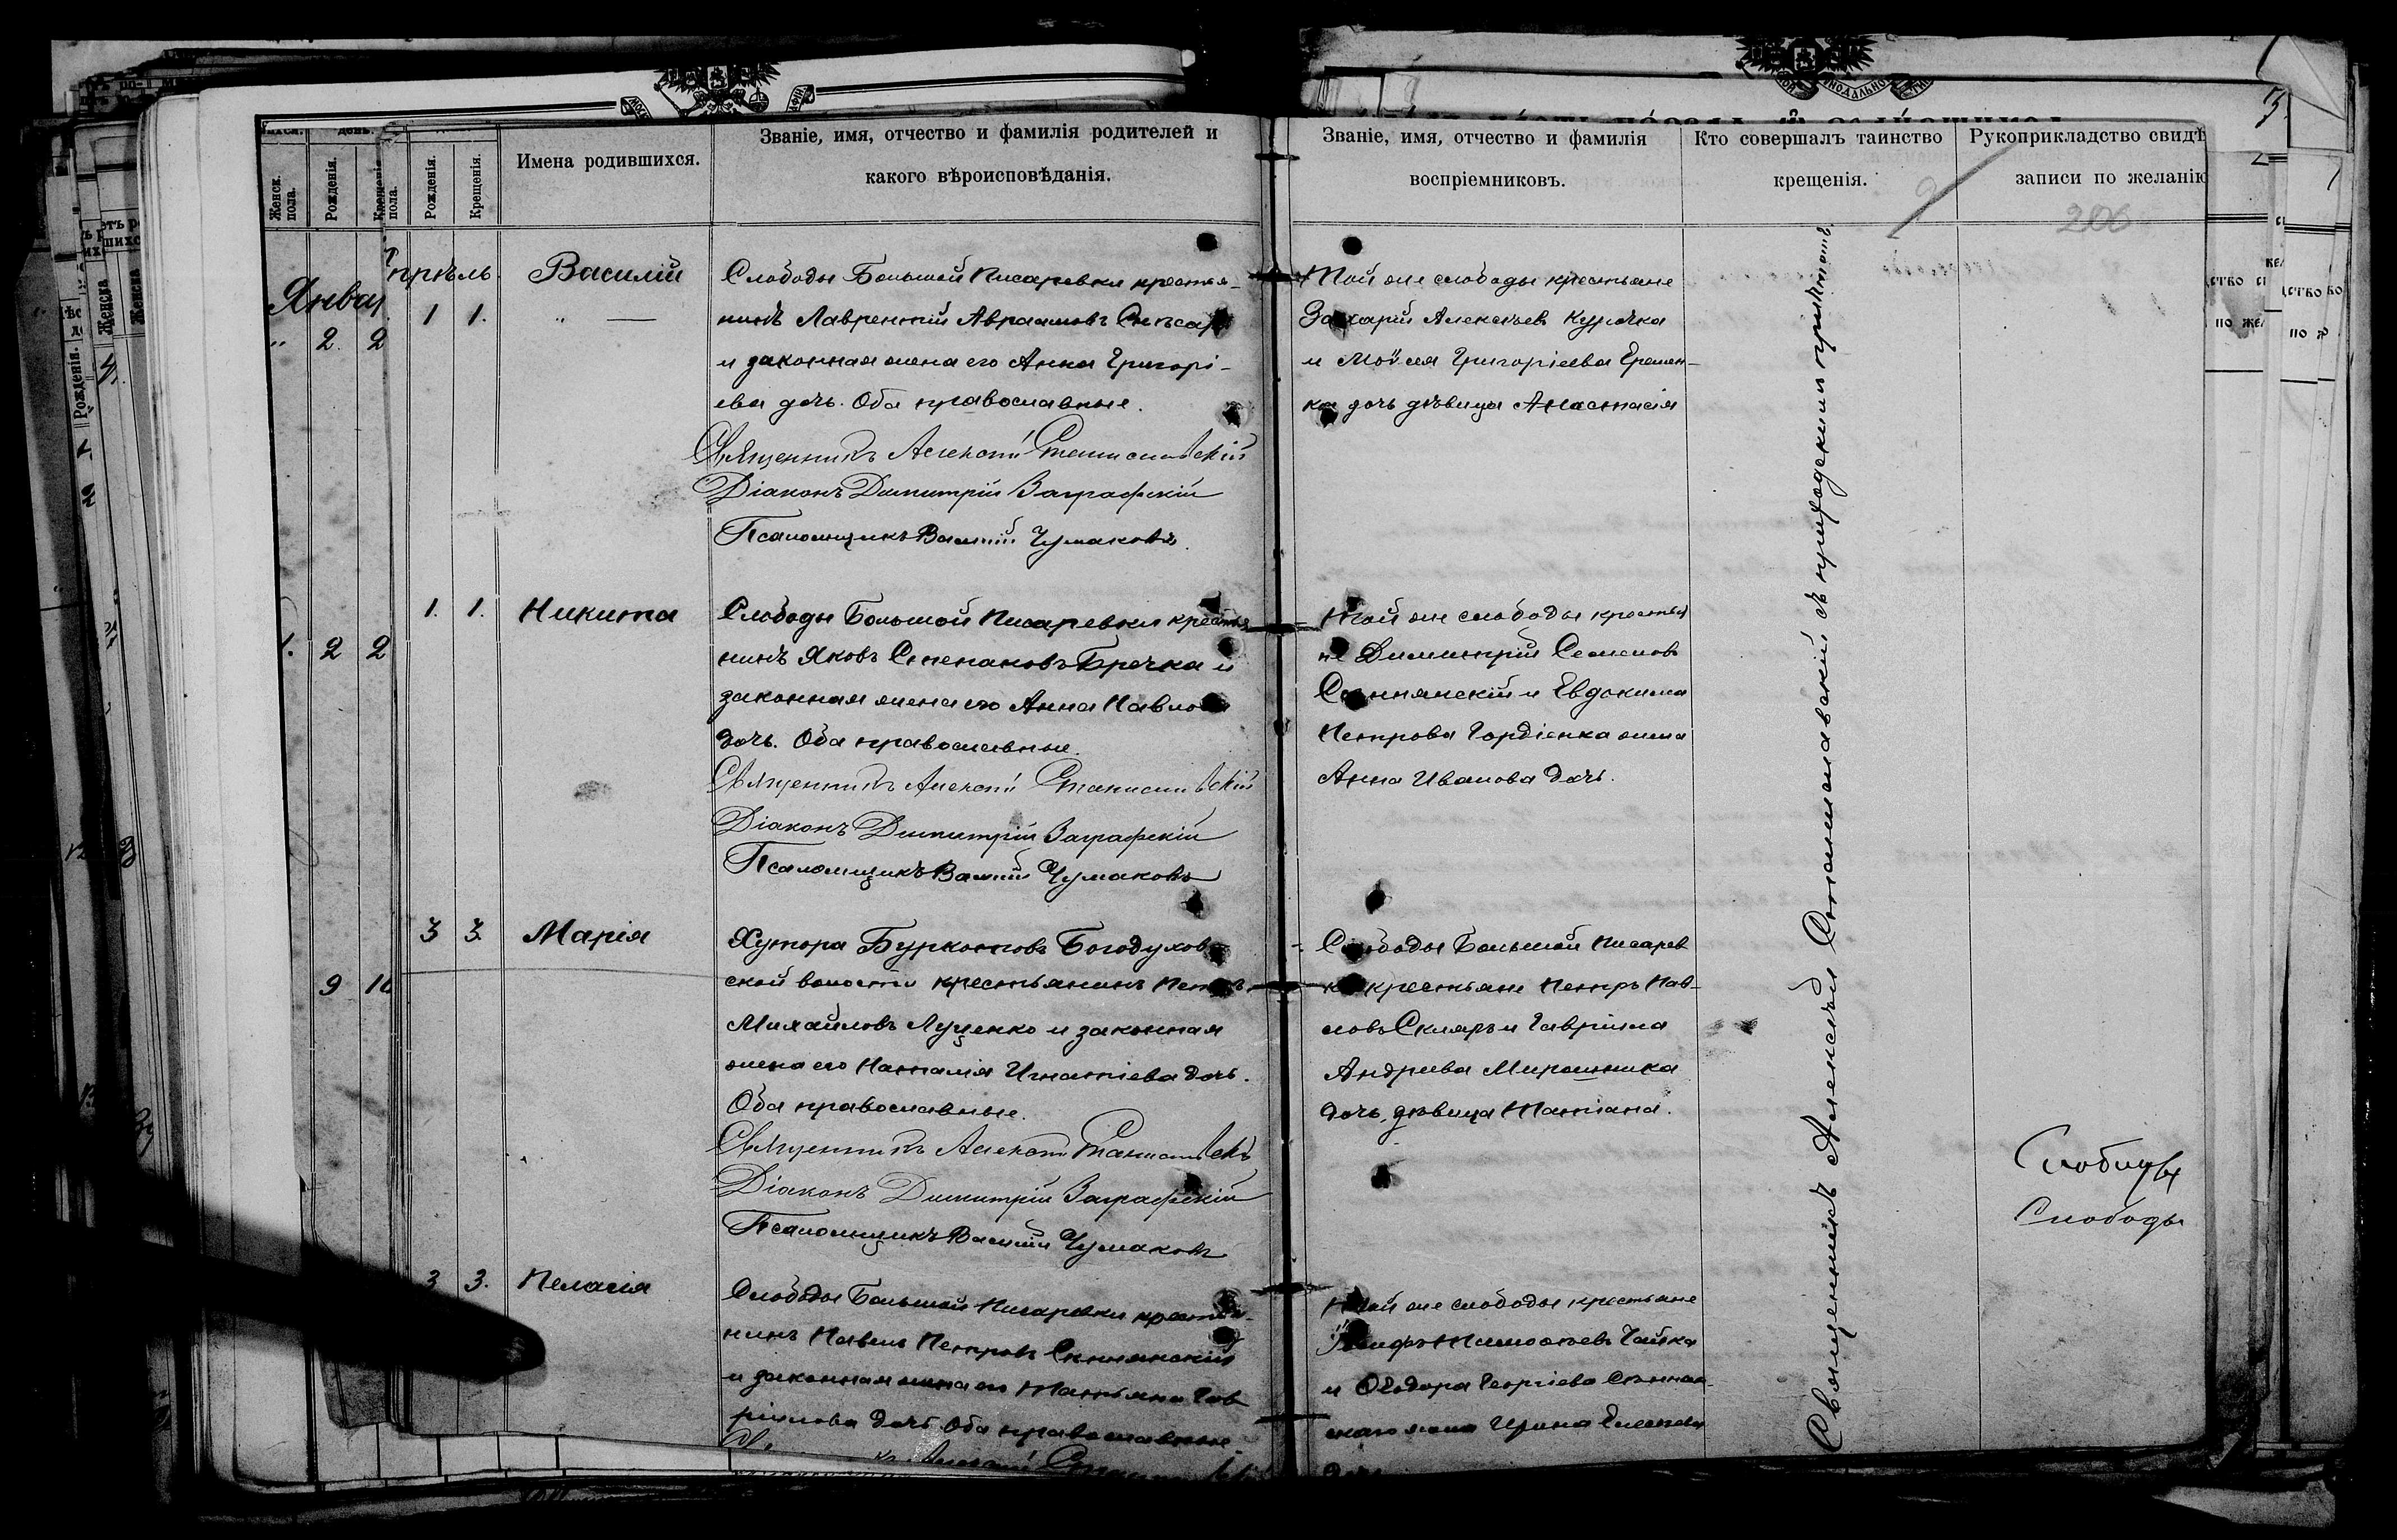 Женск. пола.
Рожденія.
Рожденія.
Крещенія.
Имена родившихся.
Званіе, имя, отчество и фамилія родителей и
какого вѣроисповѣданія.
Званіе, имя, отчество и фамилія
воспріемниковъ.
Кто совершалъ таинство
крещенія.
Рукоприкладство свидѣ
записи по желанію
206
Январ
" 2. 2
прѣль
1 1.
Василій
Слободы Большой Писаревки крестья-
нинъ Лаврентій Авраамовъ
и законная жена его Анна Григорі-
ева дочь. Оба православные.
Священникъ Алексѣй Станиславскій
Діаконъ Димитрій Заграфскій
Псаломщикъ Василій Чумаковъ
Той же слободы крестьяне
Захарій Алексѣевъ Курочка
и Моѵсея Григоріева Еремен-
ка дочь дѣвица Анастасія
1. 2 2
1. 1.
Никита
Слободы Большой Писаревки крестья
нинъ Яковъ Степановъ Бречка и
законная жена его Анна Павлова
дочь. Оба православные.
Священникъ Алексѣй Станиславскій
Діаконъ Димитрій Заграфскій
Псаломщикъ Василій Чумаковъ
Той же слободы крестья
не Димитрій Семеновъ
и Евдокима
Петрова Гордіенка жена
Анна Иванова дочь.
9 10
3 3
Марія
Хутора Буркотовъ Богодухов
ской волости крестьянинъ Петръ
Михайловъ Луценко и законная
жена его Наталія Игнатіева дочь.
Оба православные.
Священникъ Алексѣй Станиславскій
Діаконъ Димитрій Заграфскій
Псаломщикъ Василій Чумаковъ
Слободы Большой Писарев
ки крестьяне Петръ Пав-
ловъ Скляръ и Гавріила
Андреева Мирошника
дочь, дѣвица Татіана.
3 3.
Пелагія
Слободы Большой Писаревки крестья-
нинъ Павелъ Петровъ
и законная жена его Татьяна Гав
ріилова дочь Оба православные.
Алексѣй
Той же слободы крестьяне
Тимоѳеевъ Чайка
и Ѳеодора Георгіева
жена Ирина
дочь
Священникъ Алексѣй Станиславскій съ приходскимъ причтомъ.
Слободы
Слободы